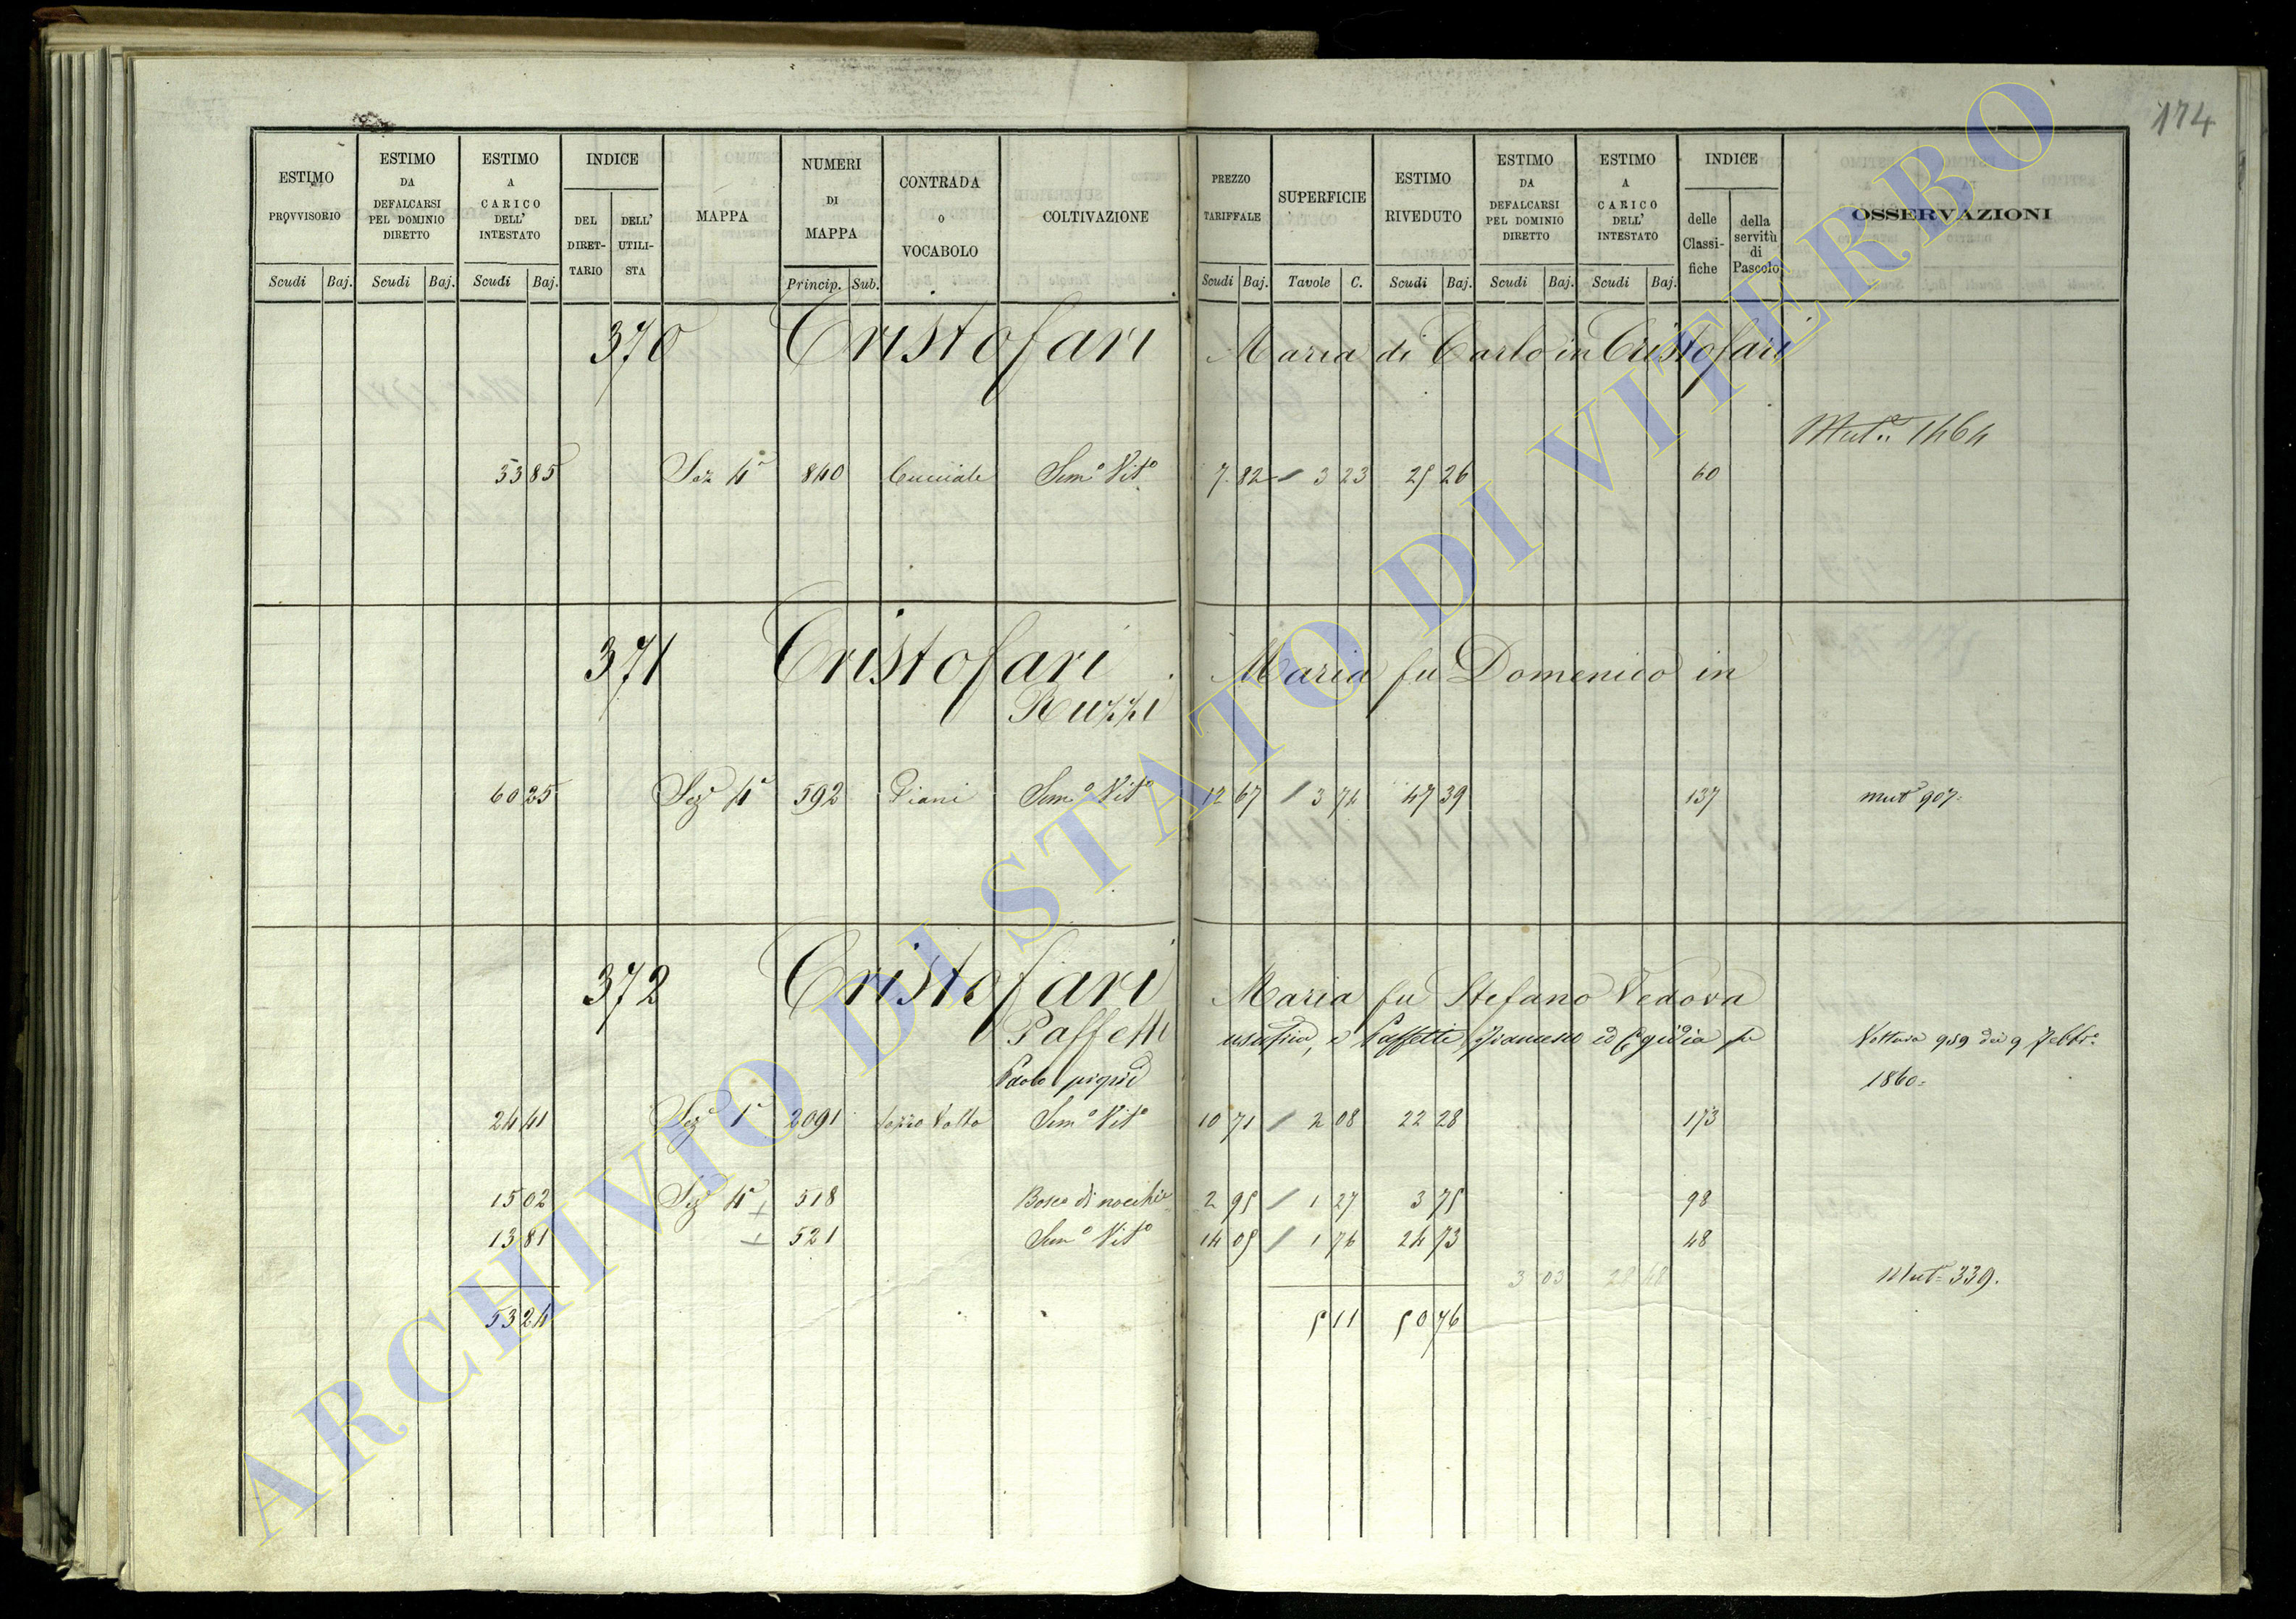 174
ESTIMO PROVVISORIO Scudi Baj.
ESTIMO DA DEFALCARSI PEL DOMINIO DIRETTO Scudi Baj.
ESTIMO A CARICO DELL' INTESTATO Scudi Baj.
INDICE DEL DIRET-TARIO DELL' UTILI-STA
MAPPA
NUMERI DI MAPPA Princip. Sub.
CONTRADA o VOCABOLO
COLTIVAZIONE
PREZZO TARIFFALE Scudi Baj.
SUPERFICIE Tavole C.
ESTIMO RIVEDUTO Scudi Baj.
ESTIMO DA DEFALCARSI PEL DOMINIO DIRETTO Scudi Baj.
ESTIMO A CARICO DELL' INTESTATO Scudi Baj.
INDICE delle Classi-fiche della servitù di Pascolo
OSSERVAZIONI
370 Cristofari Maria di Carlo in Cristofari
Mut.e 1464
53 85 Sez 4a 840 Sem.o Vit.o 7 82 3 23 25 26 60
371 Cristofari Maria fu Domenico in
Ruzzi
60 25 Sez 4a 592 Piani Sem.o Vit.o 12 67 3 74 47 39 137 mut 907
372 Cristofari Maria fu Stefano Vedova
Paffetti e Paffetti Francesco ed Egidia fu Voltura 959 dei 9 Febb.o
Paolo 1860
24 41 Sez 1a 2091 Sem.o Vit.o 10 71 2 08 22 28 173
15 02 Sez 4a 518 Bosco di nocchie 2 95 1 27 3 75 98
13 81 521 Sem.o Vit.o 14 05 1 76 24 73 48
3 03 28 48 Mut. 339.
53 24 5 11 50 76
ARCHIVIO DI STATO DI VITERBO